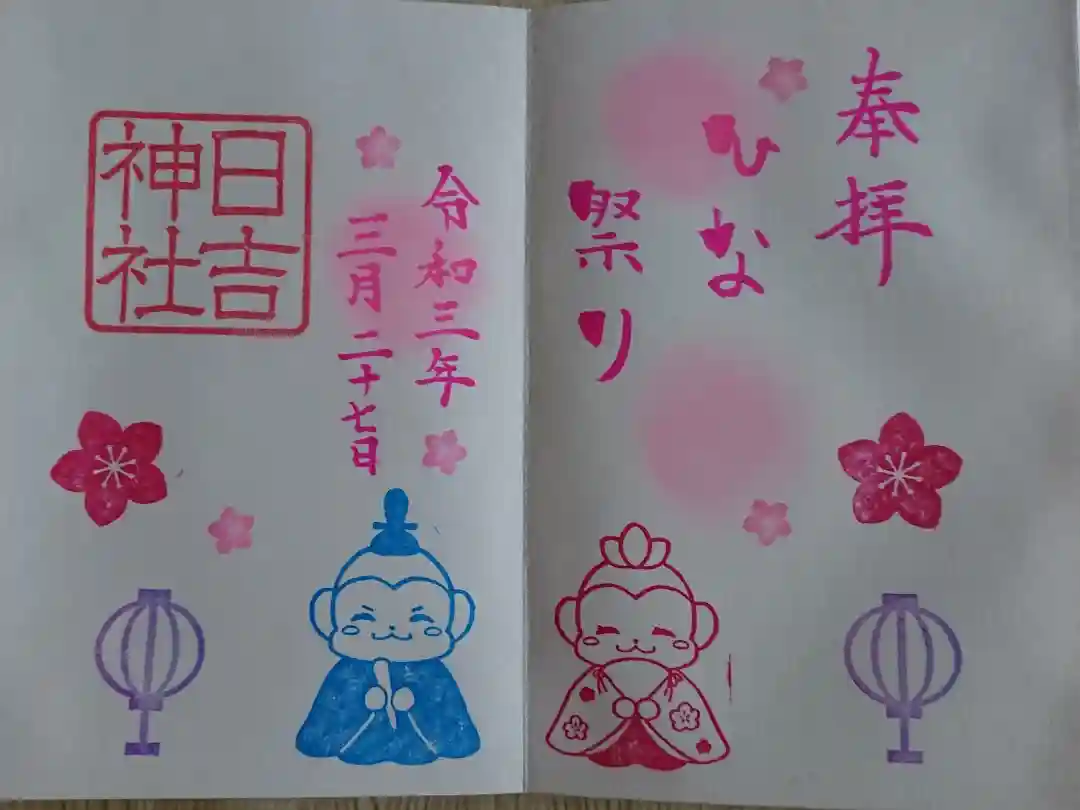 奉拝
ひな
祭り
令和三年
三月二十七日
日吉
神社